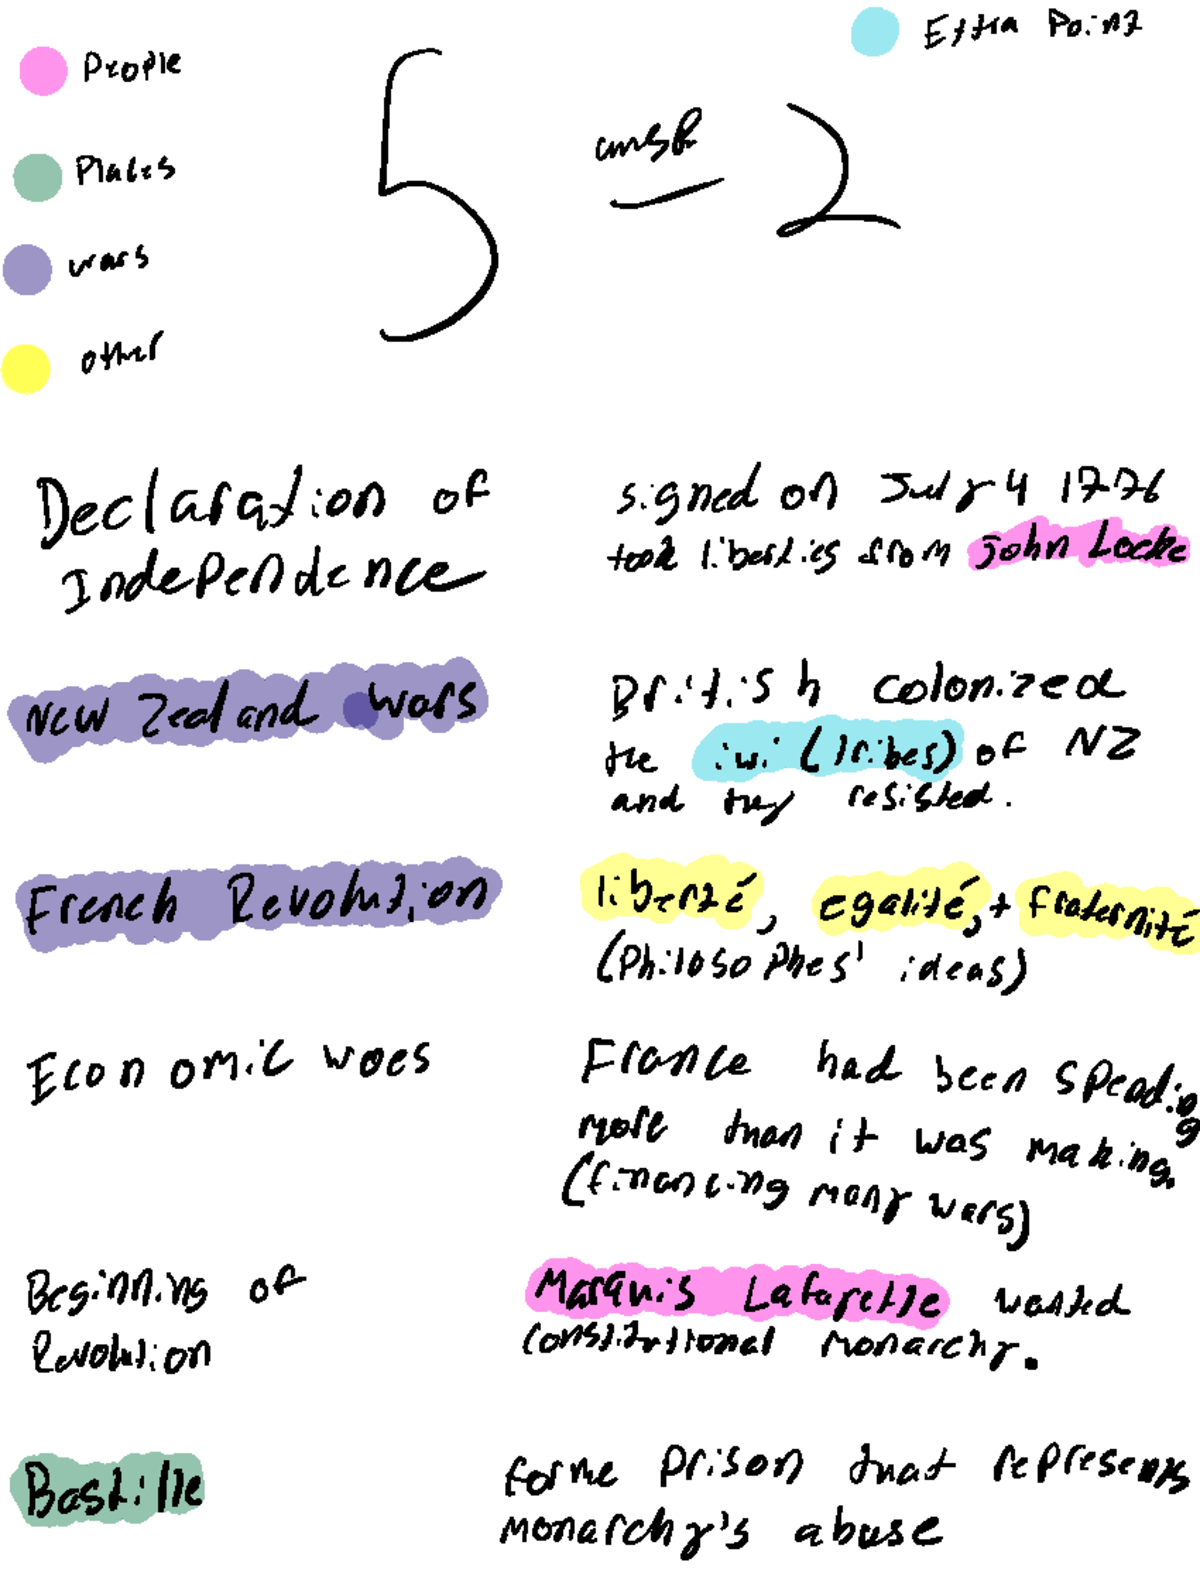 People
Places
wars
other
Extra Point
5 - 2
Declaration of
Independence
signed on July 4 1776
took liberties from John Locke
New Zealand Wars
British colonized
the iwi (tribes) of NZ
and they resisted.
French Revolution
liberté, egalité, + fraternité
(Philosophes' ideas)
Economic woes
France had been spending
more than it was making.
(financing many wars)
Beginning of
Revolution
Marquis Lafayette wanted
constitutional monarchy.
Bastille
forme prison that represents
monarchy's abuse